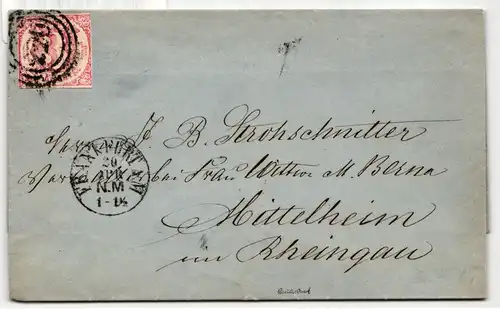 220
Herrn J. B. Strohschnitter
FRANKFURT A. M.
20
APR
N.M
1-1½
Verwalter bei Frau Witwe M. Berna
Mittelheim
im Rheingau